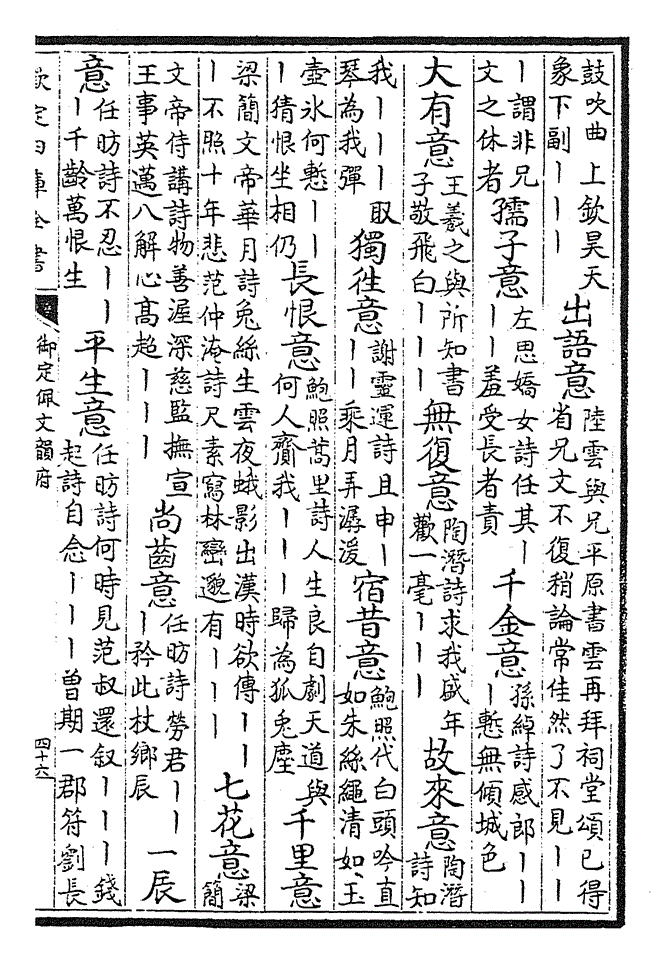 鼓吹曲上欽昊天
象下副｜｜｜
出語意
陸雲與兄平原書雲再拜祠堂頌已得
省兄文不復稍論常佳然了不見｜｜
｜謂非兄
文之休者
孺子意
左思嬌女詩任其｜
｜｜羞受長者責
千金意
孫綽詩感郎｜｜
｜慙無傾城色
大有意
王羲之與所知書
子敬飛白｜｜｜
無復意
陶潛詩求我盛年
歡一毫｜｜｜
故來意
陶潛
詩知
我｜｜｜取
琴為我彈
獨往意
謝靈運詩且申｜
｜｜乘月弄潺湲
宿昔意
鮑照代白頭吟直
如朱絲繩清如玉
壺氷何慙｜｜
｜猜恨坐相仍
長恨意
鮑照蒿里詩人生良自劇天道與
何人賷我｜｜｜歸為狐兔塵
千里意
梁簡文帝華月詩兔絲生雲夜蛾影出漢時欲傳｜｜
｜不照十年悲范仲淹詩尺素寫林巒邈有｜｜｜
七花意
梁
簡
文帝侍講詩物善渥深慈監撫宣
王事英邁八解心高超｜｜｜
尚齒意
任昉詩勞君｜｜
｜矜此杖鄉辰
一辰
意
任昉詩不忍｜｜
｜千齡萬恨生
平生意
任昉詩何時見范叔還叙｜｜｜錢
起詩自念｜｜｜曾期一郡符劉長
欽定四庫全書
御定佩文韻府
四十六